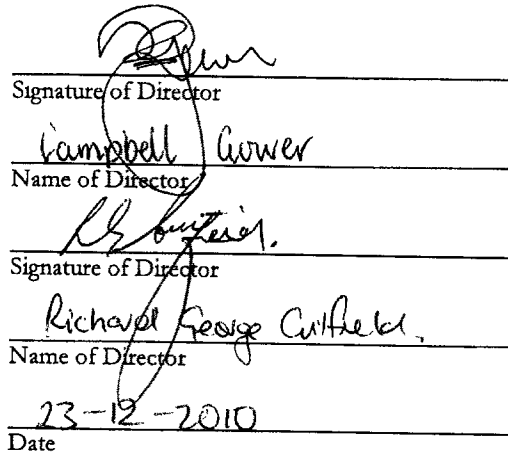 Signature of Director
Campbell Gower
Name of Director
Signature of Director
Richard George
Name of Director
23-12-2010
Date